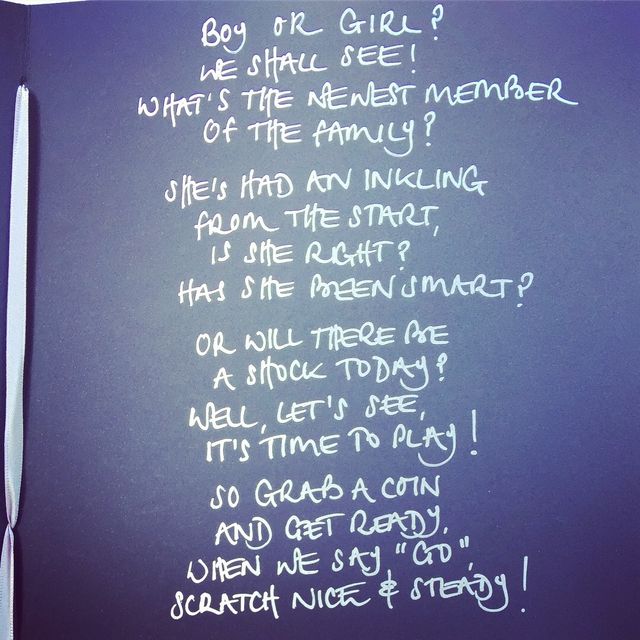 BOY OR GIRL?
WE SHALL SEE!
WHAT'S THE NEWEST MEMBER
OF THE FAMILY?
SHE'S HAD AN INKLING
FROM THE START,
IS SHE RIGHT?
HAS SHE BEEN SMART?
OR WILL THERE BE
A SHOCK TODAY?
WELL, LET'S SEE,
IT'S TIME TO PLAY!
SO GRAB A COIN
AND GET READY,
WHEN WE SAY "GO",
SCRATCH NICE & STEADY!